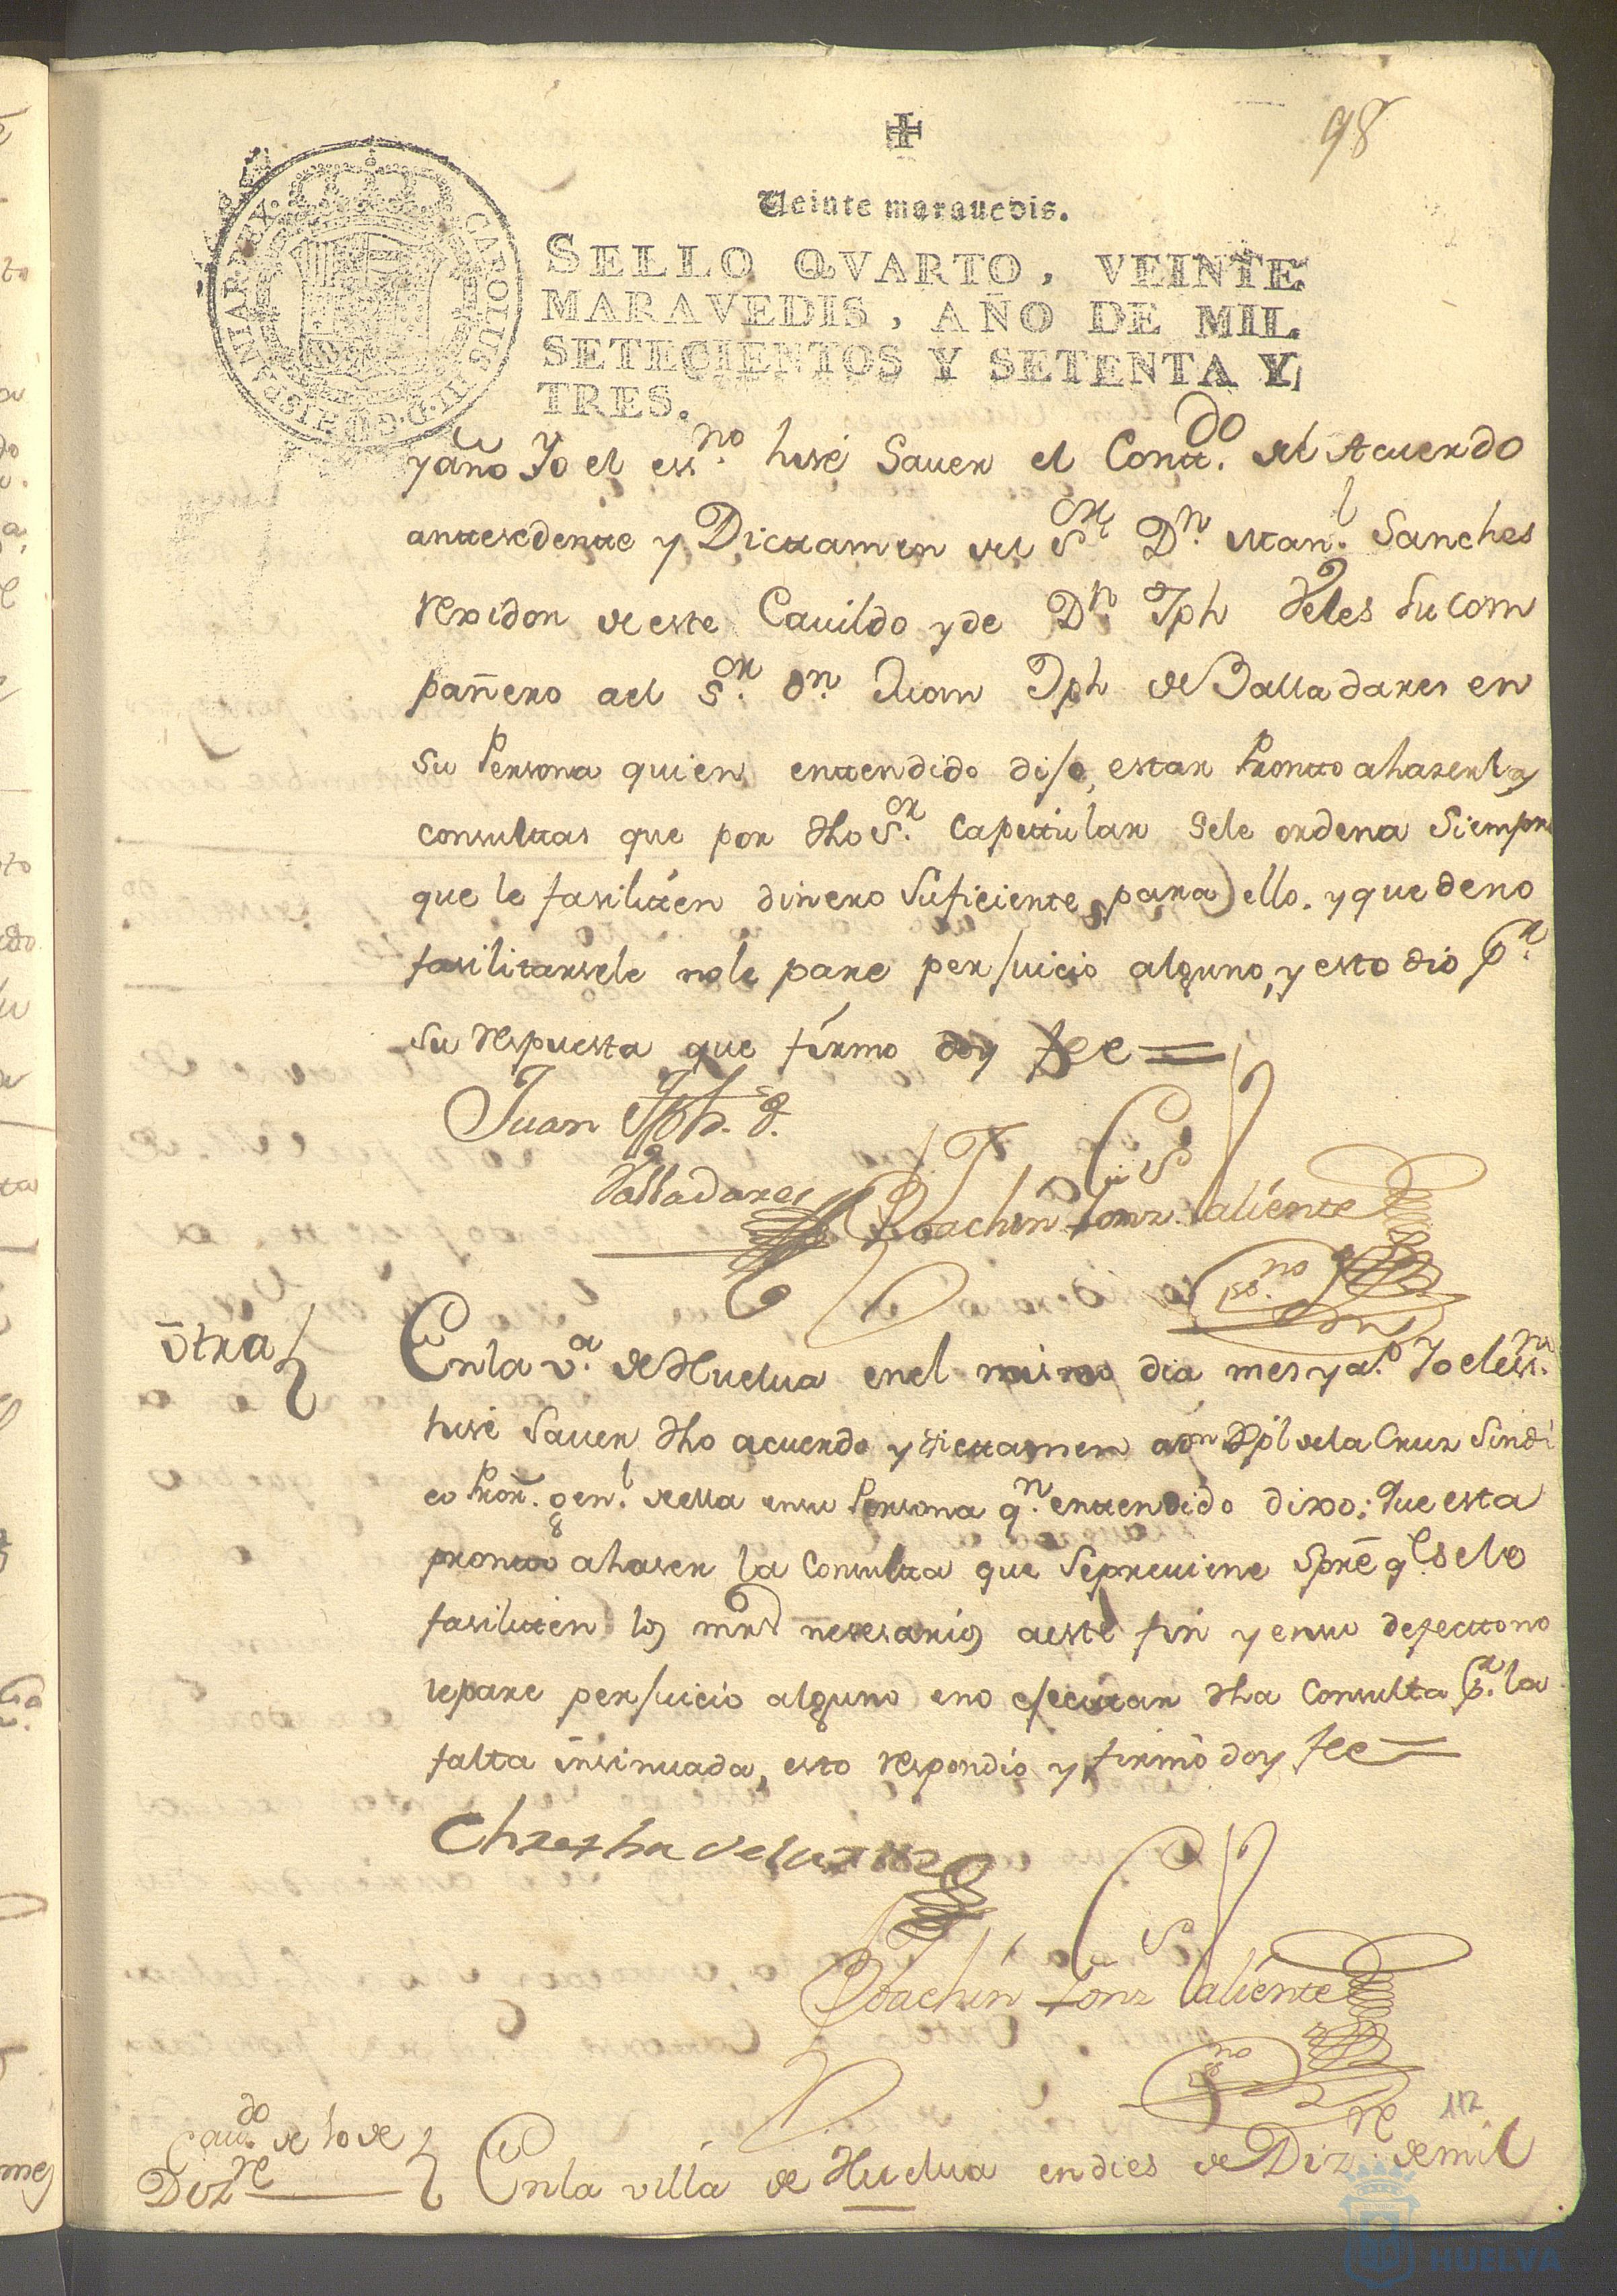 98
Veinte marauedis.
SELLO QVARTO, VEINTE
MARAVEDIS, AÑO DE MIL
SETECIENTOS Y SETENTA Y
TRES.
CAROLUS III D G HISP ET INDIAR REX
y año Yo el essno. hisé Sauer el Contdo. del Acuerdo
antesedente y Dictamen del Sor Dn. Manl. Sanches
rexidor de este Cauildo y de Dn. Jph Veles su com
pañero a el Sor. Dn. Juan Jph de Balladares en
su Persona quien entendido dijo, estar Pronto a haser las
consultas que por dho Sor. Capitular se le ordena Siempre
que le fasiliten dinero suficiente para ello. y que de no
fasilitarsele no le pare perjuicio alguno, y esto dio pr.
su respuesta que firmo doy fee =
Juan Jph. d.
Valladares
Joachin Gonz. Valiente
Essno.
ōtra
En la va. de Huelua en el mismo dia mes y ao. Yo el essno.
hisé Sauer dho acuerdo y dictamen a Dn Xpl de la Cruz Sindi
co Pror. genl. de ella en su Persona qn. entendido dixo: Que esta
pronto a haser la Consulta que se preuiene Spre qe. se le
fasiliten los mrs nesesarios a este fin y en su defecto no
le pare perjuicio alguno en o ejecutar dha Consulta pr. la
falta insinuada, esto respondio y firmó doy fee =
de la Cruz
Joachin Gonz Valiente
Essno.
Caudo. de 10 de
Dizre
En la villa de Huelua en dies de Dizre. de mil
112
HUELVA